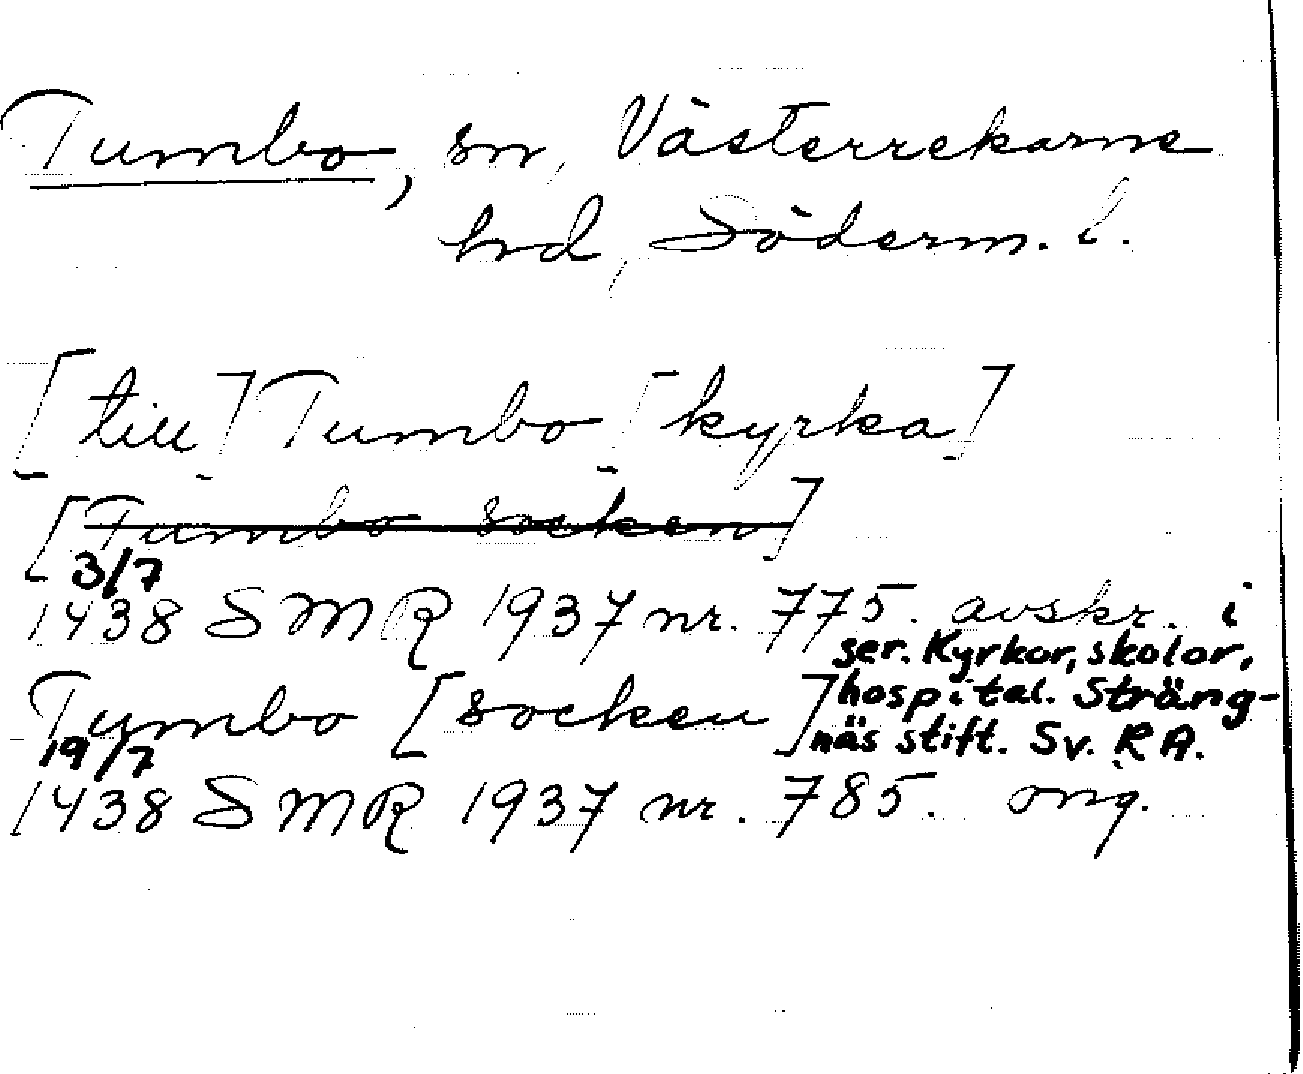 Tumbo, sn, Västerrekarne
hd, Söderm. l.
[till] Tumbo [kyrka]
[Tumbo socken]
3/7
1438 SMR 1937 nr. 775. avskr. i
ser. Kyrkor, skolor,
hospital. Sträng-
näs stift. Sv. RA.
Tumbo [socken]
19/7
1438 SMR 1937 nr. 785. orig.